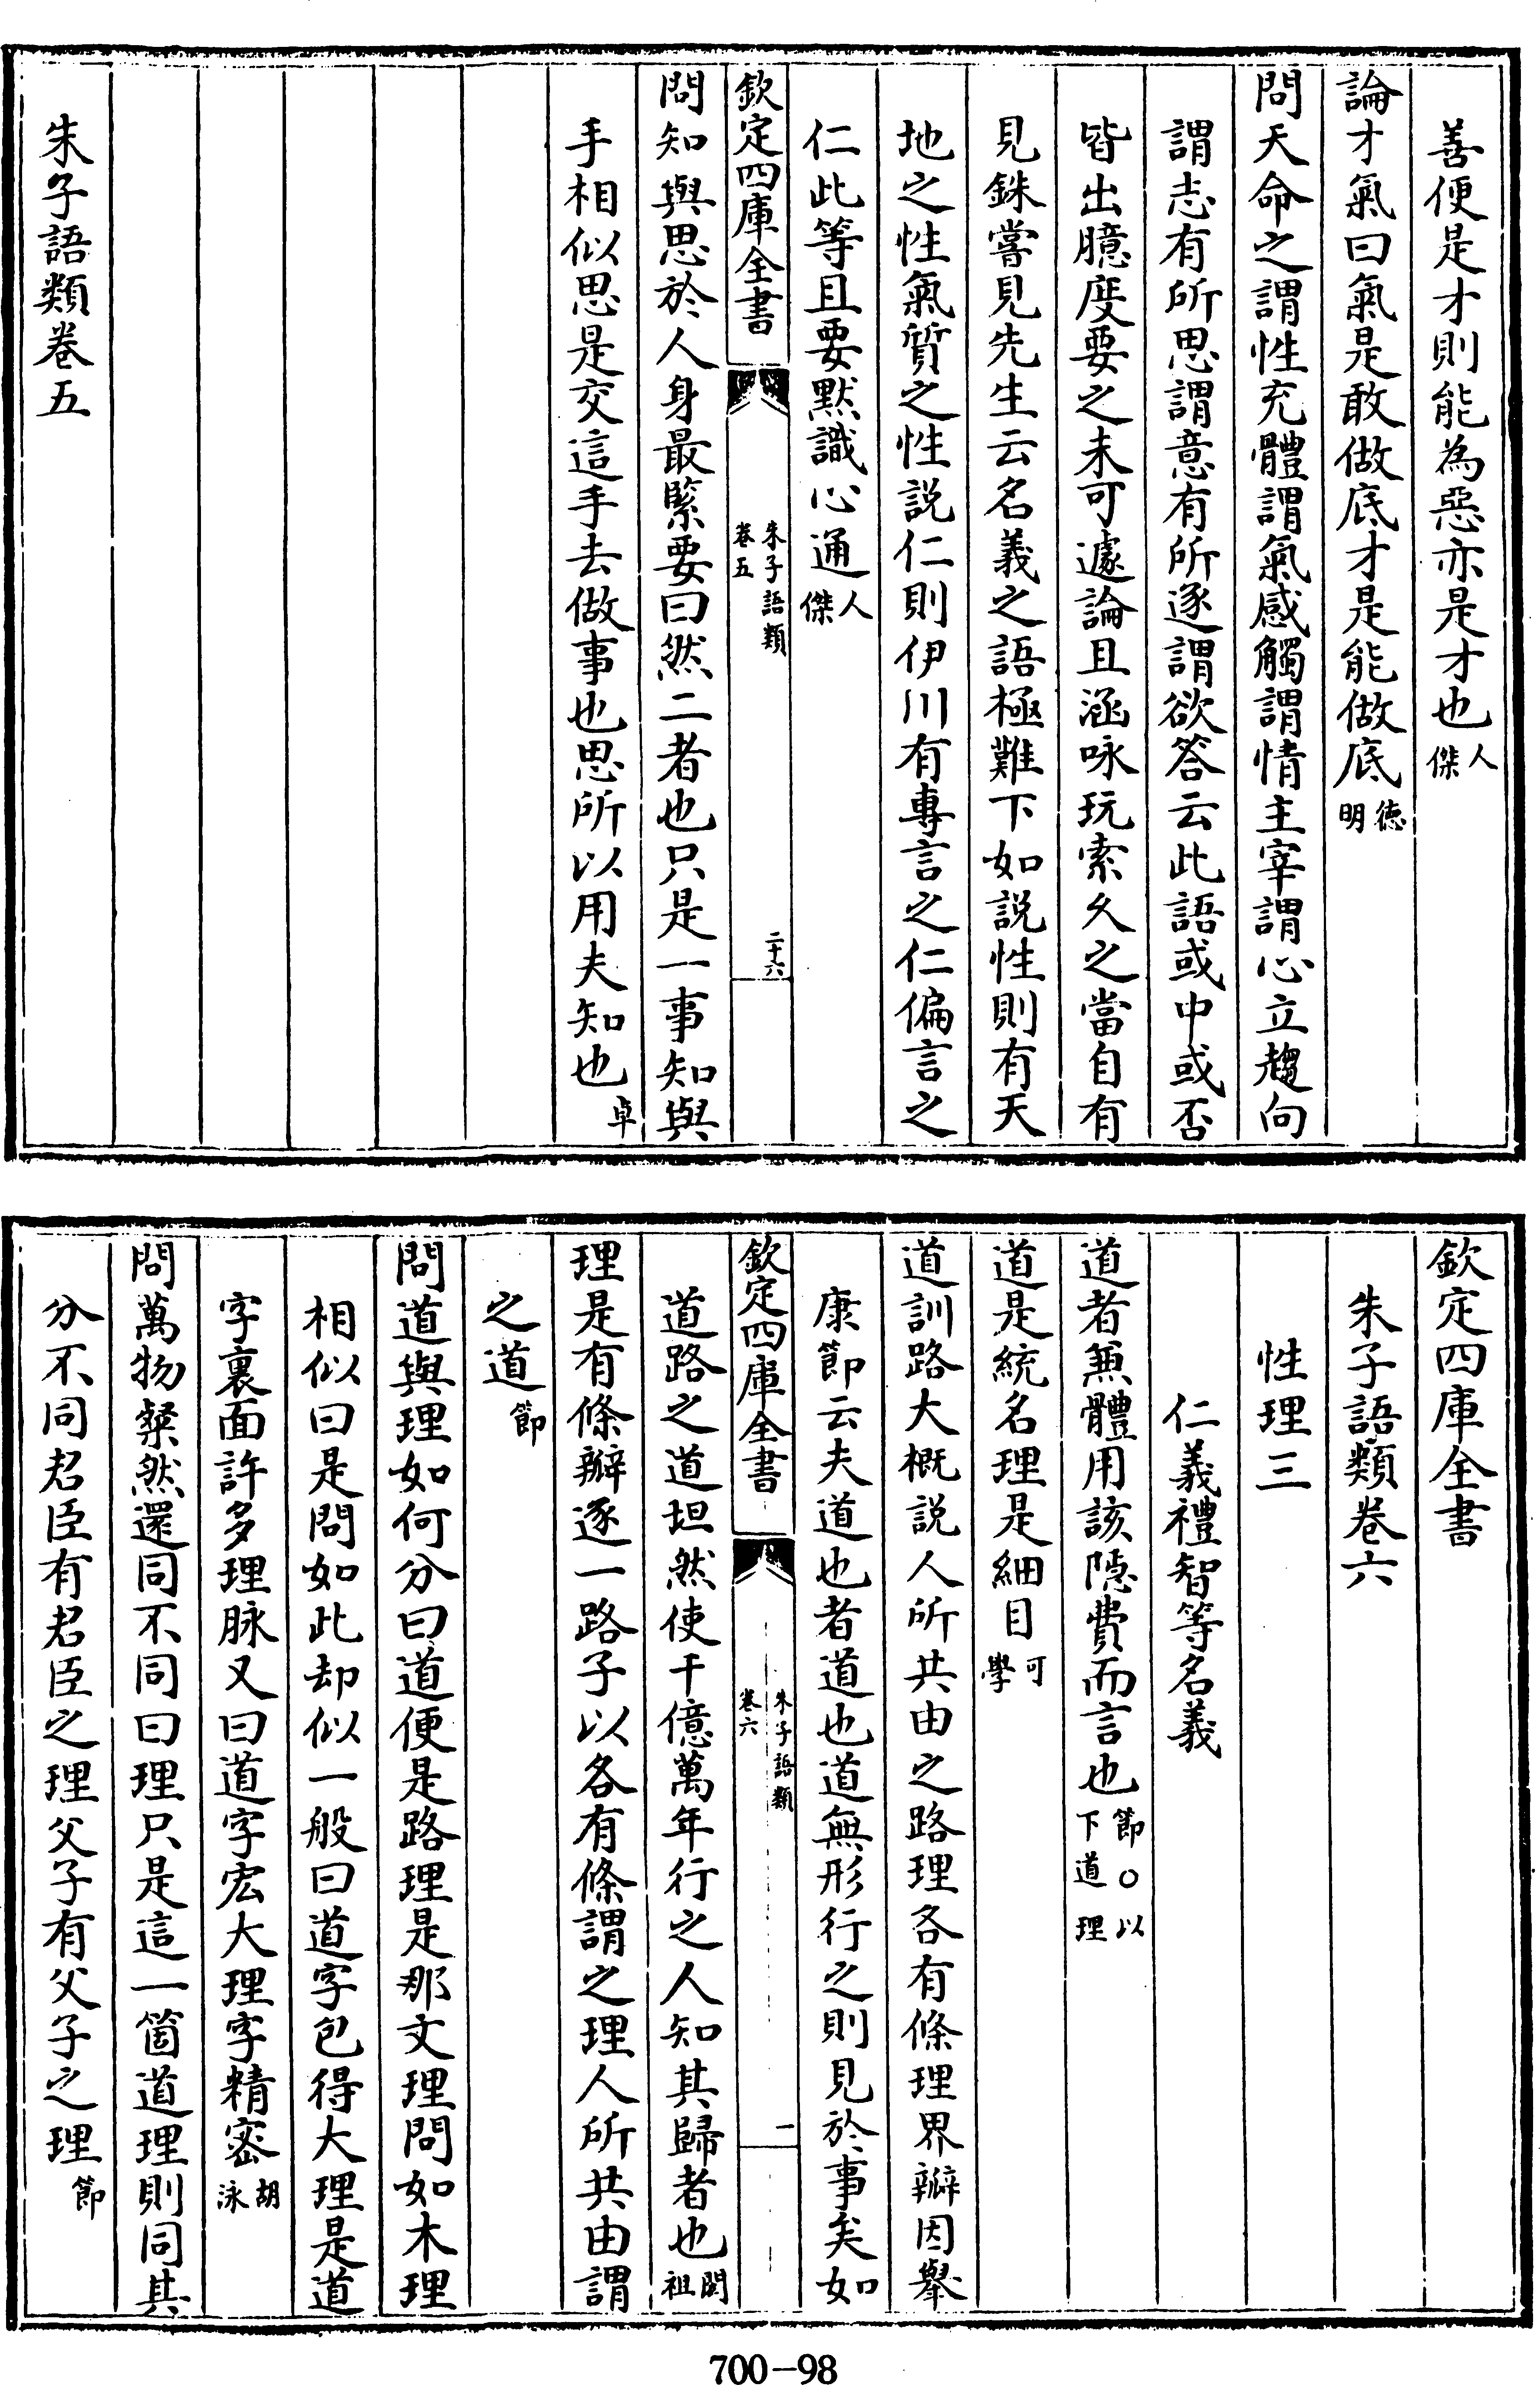 善便是才則能為惡亦是才也人傑
論才氣曰氣是敢做底才是能做底德明
問天命之謂性充體謂氣感觸謂情主宰謂心立趨向
謂志有所思謂意有所逐謂欲答云此語或中或否
皆出臆度要之未可遽論且涵咏玩索久之當自有
見銖嘗見先生云名義之語極難下如説性則有天
地之性氣質之性説仁則伊川有專言之仁偏言之
仁此等且要默識心通人傑
欽定四庫全書
朱子語類
卷五
二十六
問知與思於人身最緊要曰然二者也只是一事知與
手相似思是交這手去做事也思所以用夫知也卓
朱子語類卷五
欽定四庫全書
朱子語類卷六
性理三
仁義禮智等名義
道者兼體用該隱費而言也節○以下道理
道是統名理是細目可學
道訓路大概説人所共由之路理各有條理界瓣因舉
康節云夫道也者道也道無形行之則見於事矣如
欽定四庫全書
朱子語類
卷六
一
道路之道坦然使千億萬年行之人知其歸者也閎祖
理是有條瓣逐一路子以各有條謂之理人所共由謂
之道節
問道與理如何分曰道便是路理是那文理問如木理
相似曰是問如此却似一般曰道字包得大理是道
字裏面許多理脉又曰道字宏大理字精密胡泳
問萬物粲然還同不同曰理只是這一箇道理則同其
分不同君臣有君臣之理父子有父子之理節
700-98